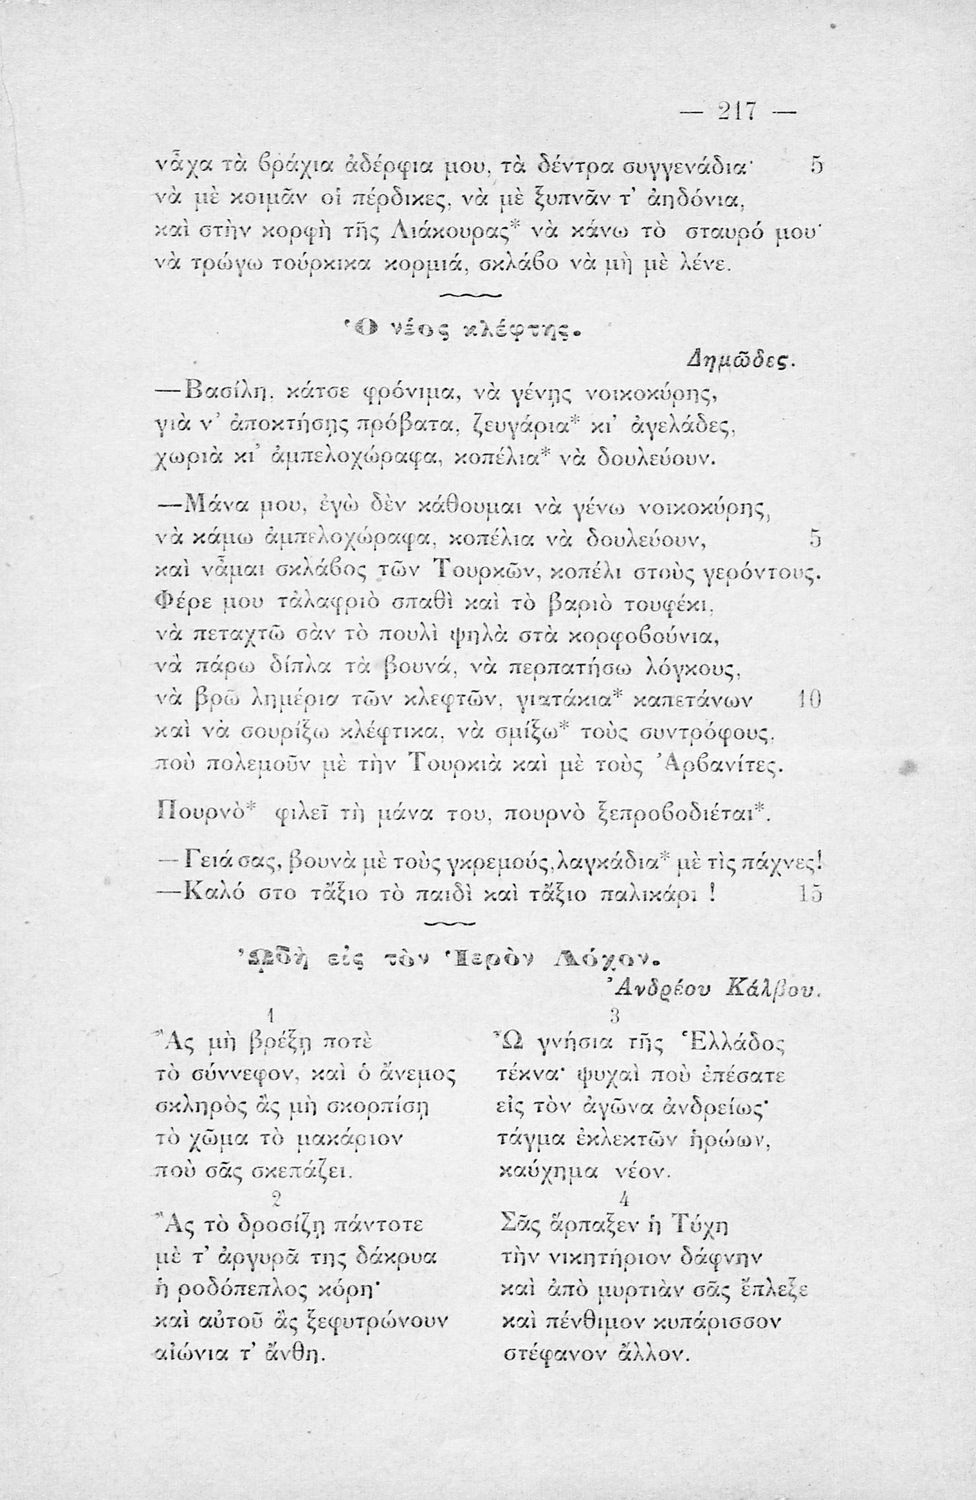 — 217 —
νἆχα τὰ βράχια ἀδέρφια μου, τὰ δέντρα συγγενάδια· 5
νὰ μὲ κοιμᾶν οἱ πέρδικες, νὰ μὲ ξυπνᾶν τ᾿ ἀηδόνια,
καὶ στὴν κορφὴ τῆς Λιάκουρας* νὰ κάνω τὸ σταυρό μου·
νὰ τρώγω τούρκικα κορμιά, σκλάβο νὰ μὴ μὲ λένε.
Ὁ νέος κλέφτης.
Δημῶδες.
—Βασίλη, κάτσε φρόνιμα, νὰ γένῃς νοικοκύρης,
γιὰ ν᾿ ἀποκτήσῃς πρόβατα, ζευγάρια* κι᾿ ἀγελάδες,
χωριὰ κι᾿ ἀμπελοχώραφα, κοπέλια* νὰ δουλεύουν.
—Μάνα μου, ἐγὼ δὲν κάθουμαι νὰ γένω νοικοκύρης,
νὰ κάμω ἀμπελοχώραφα, κοπέλια νὰ δουλεύουν, 5
καὶ νἆμαι σκλάβος τῶν Τουρκῶν, κοπέλι στοὺς γερόντους.
Φέρε μου τἀλαφριὸ σπαθὶ καὶ τὸ βαριὸ τουφέκι,
νὰ πεταχτῶ σὰν τὸ πουλὶ ψηλὰ στὰ κορφοβούνια,
νὰ πάρω δίπλα τὰ βουνά, νὰ περπατήσω λόγκους,
νὰ βρῶ λημέρια τῶν κλεφτῶν, γιατάκια* καπετάνων 10
καὶ νὰ σουρίξω κλέφτικα, νὰ σμίξω* τοὺς συντρόφους,
ποὺ πολεμοῦν μὲ τὴν Τουρκιὰ καὶ μὲ τοὺς Ἀρβανίτες.
Πουρνὸ* φιλεῖ τὴ μάνα του, πουρνὸ ξεπροβοδιέται*.
—Γειά σας, βουνὰ μὲ τοὺς γκρεμούς, λαγκάδια* μὲ τὶς πάχνες!
—Καλό στο τἄξιο τὸ παιδὶ καὶ τἄξιο παλικάρι ! 15
ᾨδὴ εἰς τὸν Ἱερὸν Λόχον.
Ἀνδρέου Κάλβου.
1
Ἂς μὴ βρέξῃ ποτὲ
τὸ σύννεφον, καὶ ὁ ἄνεμος
σκληρὸς ἂς μὴ σκορπίσῃ
τὸ χῶμα τὸ μακάριον
ποὺ σᾶς σκεπάζει.
2
Ἂς τὸ δροσίζῃ πάντοτε
μὲ τ᾿ ἀργυρᾶ της δάκρυα
ἡ ροδόπεπλος κόρη·
καὶ αὐτοῦ ἂς ξεφυτρώνουν
αἰώνια τ᾿ ἄνθη.
3
Ὦ γνήσια τῆς Ἑλλάδος
τέκνα· ψυχαὶ ποὺ ἐπέσατε
εἰς τὸν ἀγῶνα ἀνδρείως·
τάγμα ἐκλεκτῶν ἡρώων,
καύχημα νέον.
4
Σᾶς ἅρπαξεν ἡ Τύχη
τὴν νικητήριον δάφνην
καὶ ἀπὸ μυρτιὰν σᾶς ἔπλεξε
καὶ πένθιμον κυπάρισσον
στέφανον ἄλλον.